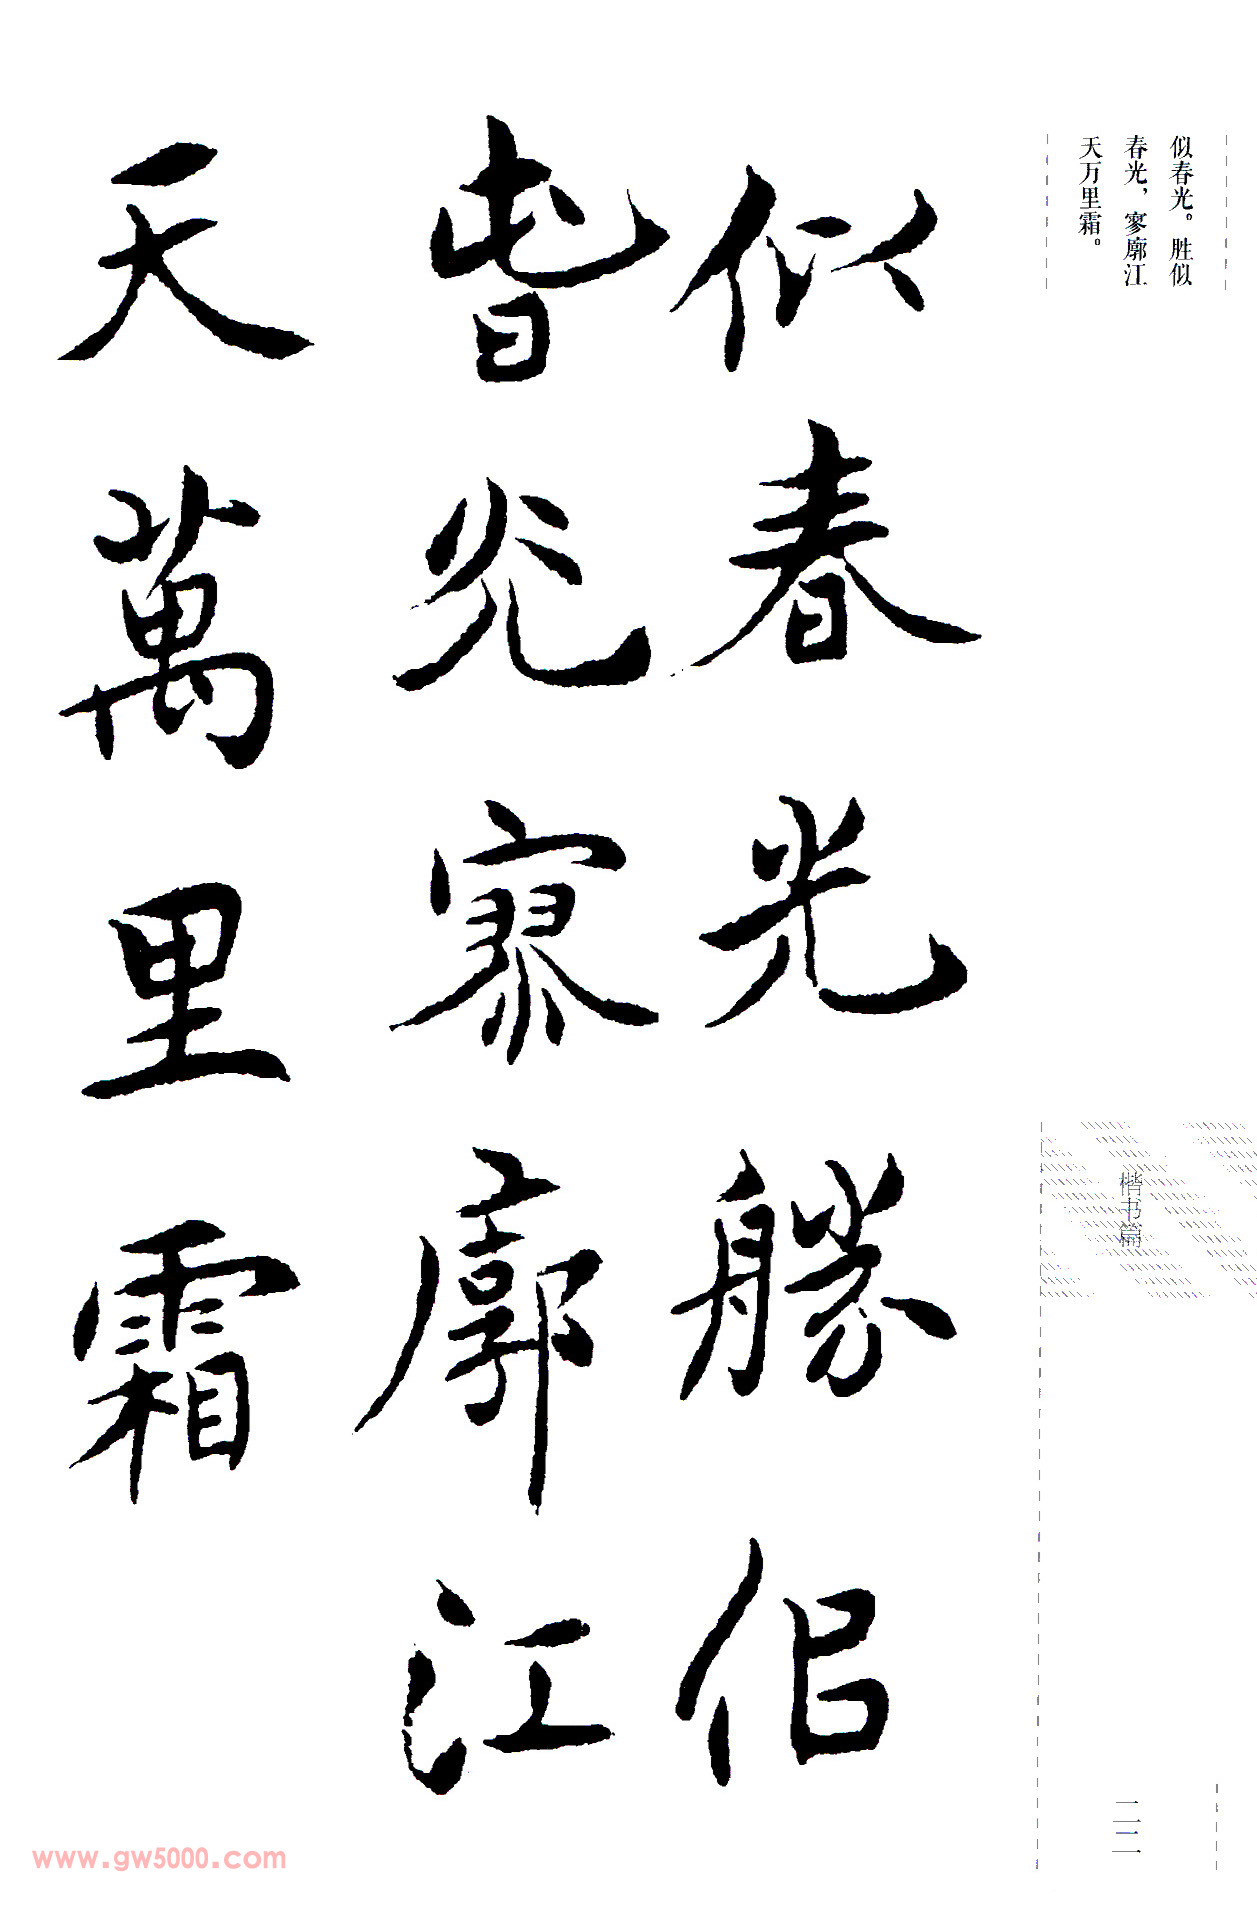 似春光。胜似
春光，寥廓江
天万里霜。
似春光勝佀
旾光寥廓江
天萬里霜
楷书篇
二二
www.gw5000.com